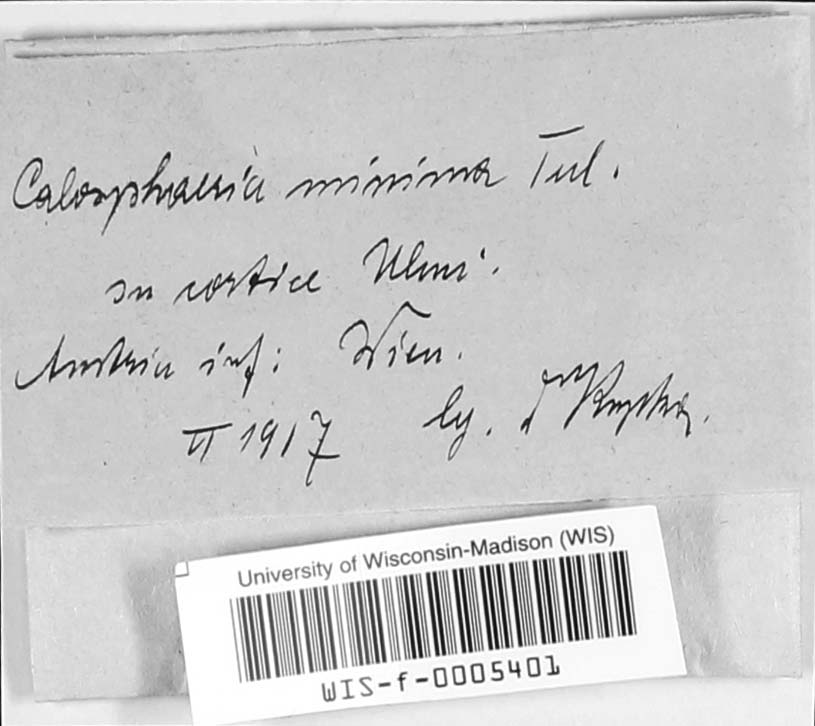 Calosphaeria minima Tul.
in cortice Ulmi.
Austria inf: Wien.
VI 1917 lg. Dr Rupka.
University of Wisconsin-Madison (WIS)
WIS-f-0005401